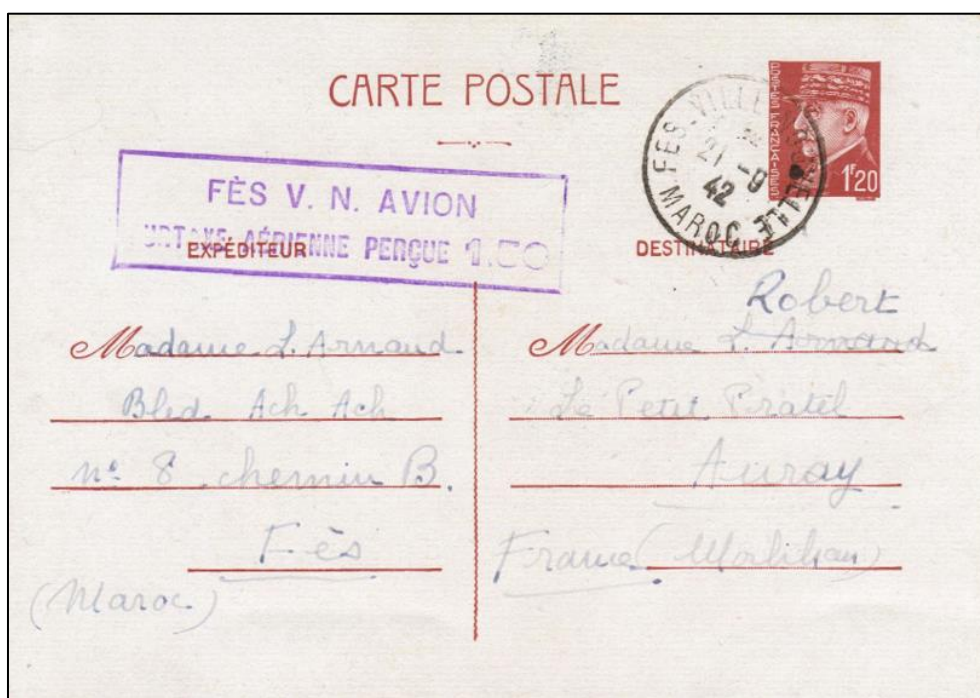 CARTE POSTALE
POSTES FRANÇAISES
1F20
FES-VILLE NOUVELLE
21 -9
42
MAROC
FÈS V. N. AVION
URTAXE AÉRIENNE PERÇUE 1.50
EXPÉDITEUR
Madame L. Arnaud
Bled Ach Ach
n° 8 chemin B.
Fès
(Maroc)
DESTINATAIRE
Robert
Madame L. Armand
Le Petit Pratel
Auray
France (Morbihan)